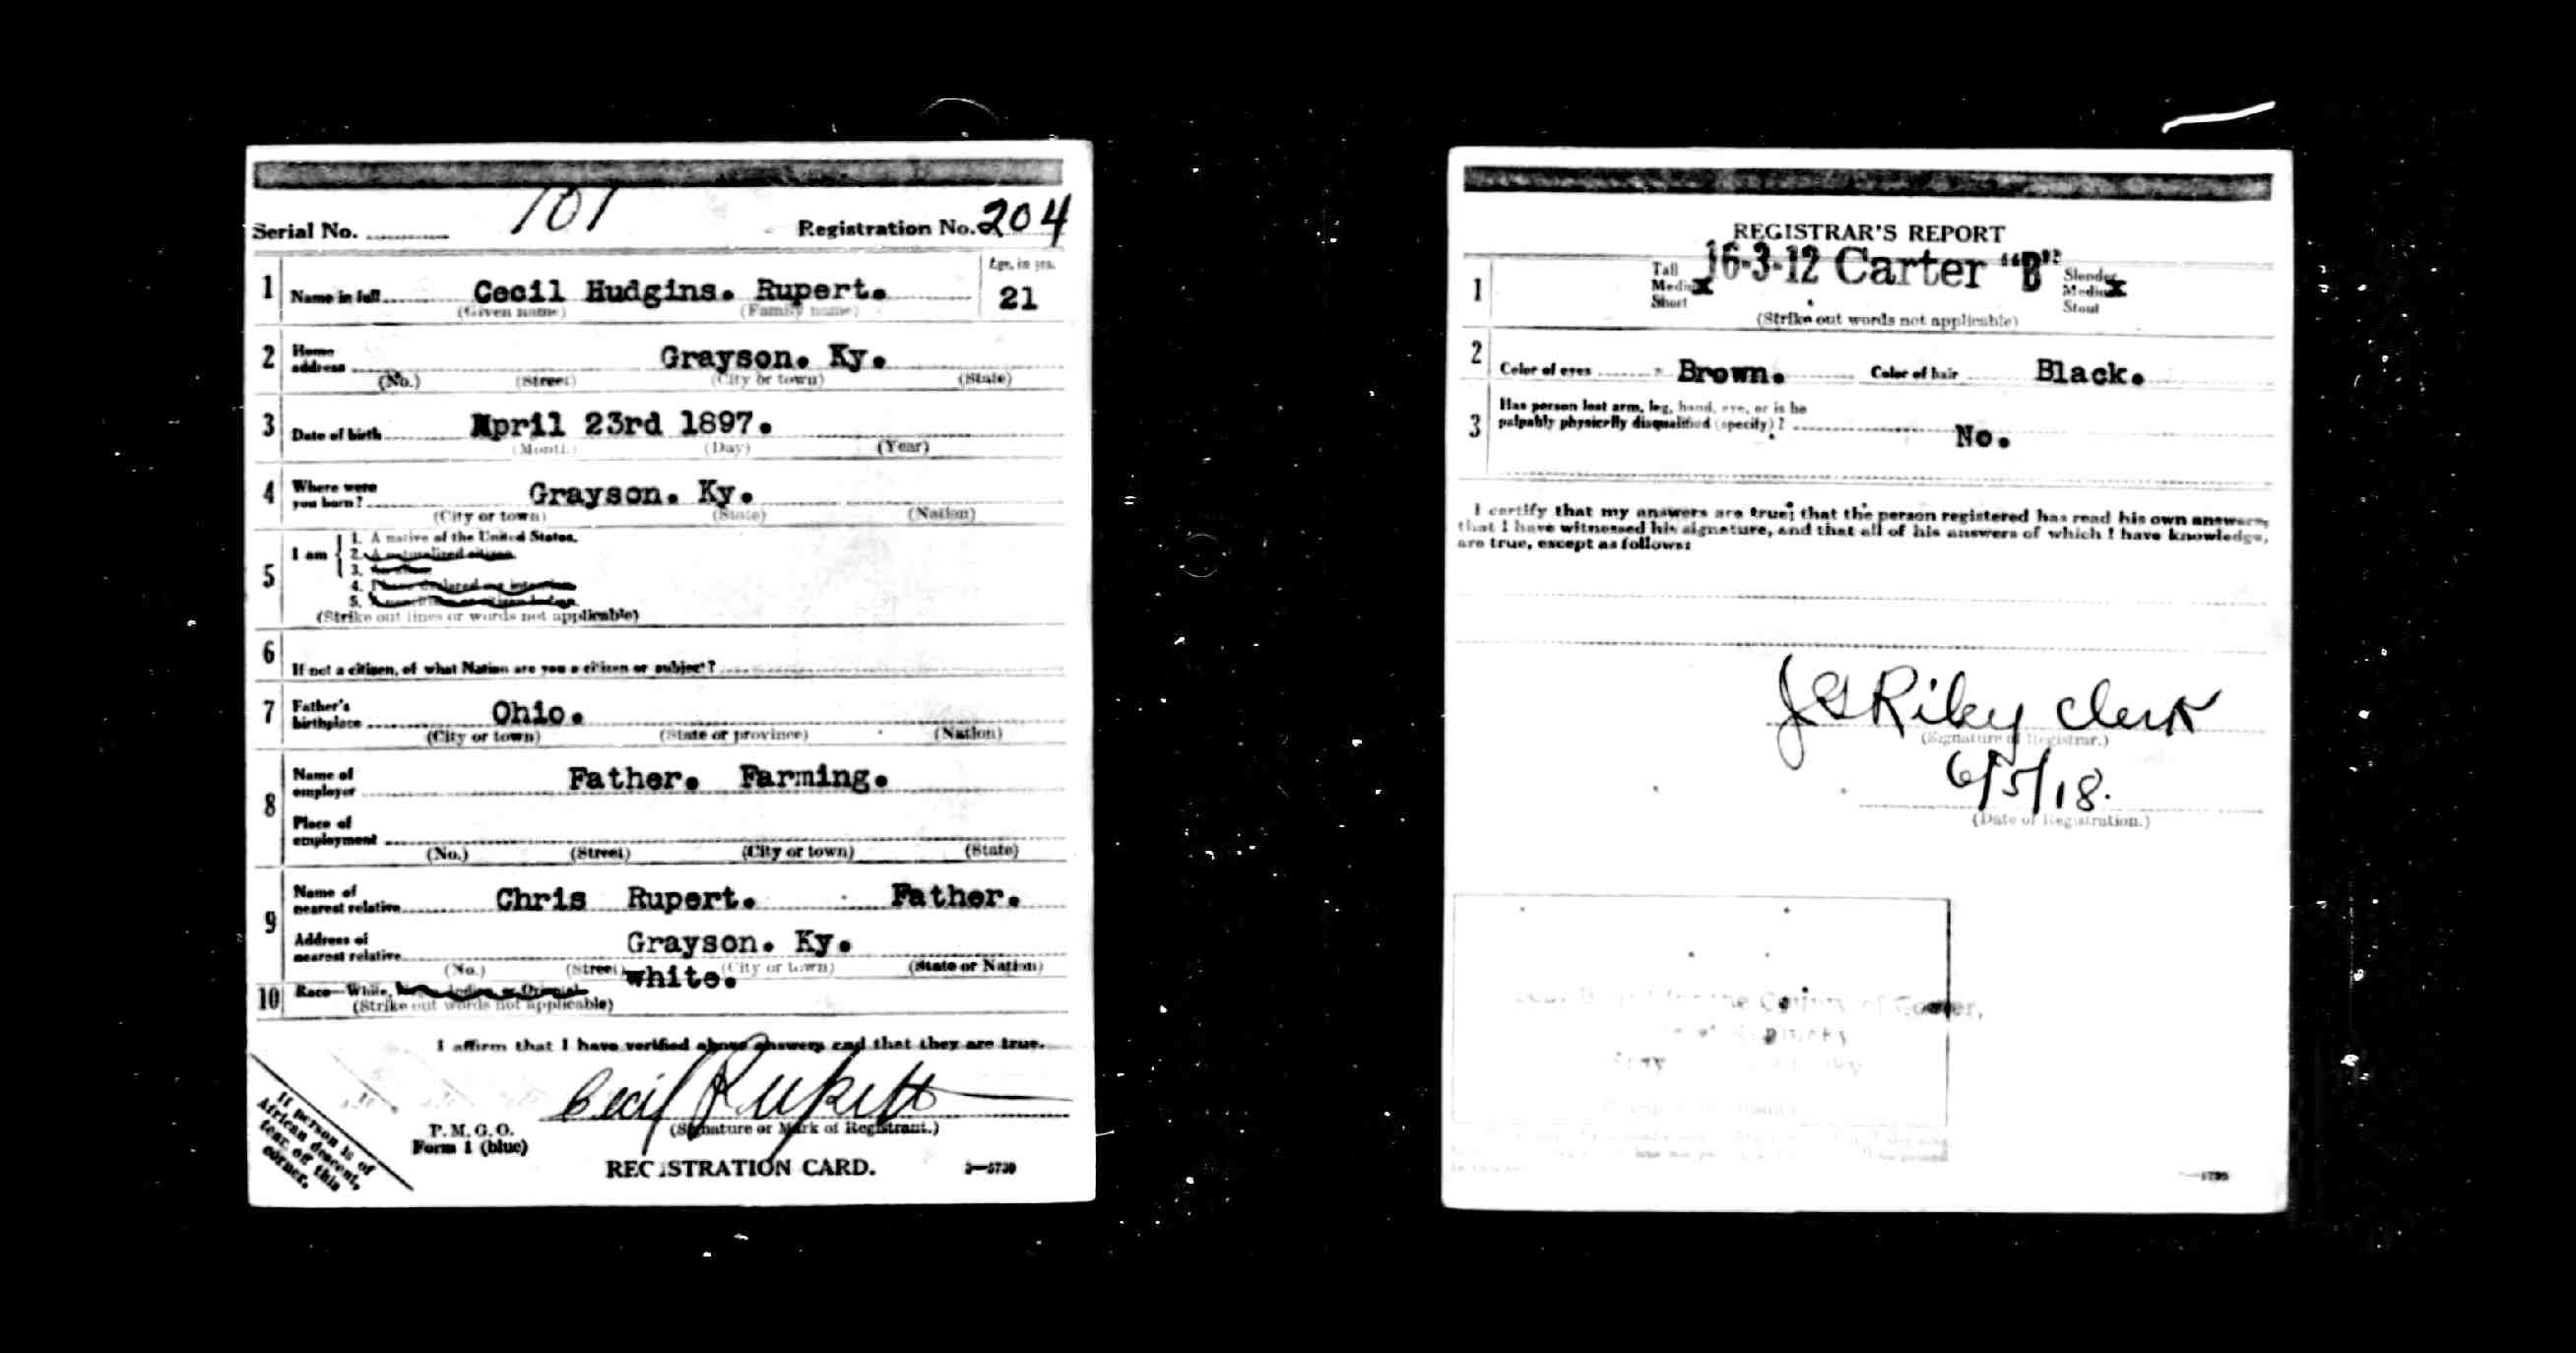 Serial No. 101 Registration No. 204
Age, in yrs.
1 Name in full Cecil Hudgins. Rupert. 21
(Given name) (Family name)
2 Home address Grayson. Ky.
(No.) (Street) (City or town) (State)
3 Date of birth April 23rd 1897.
(Month.) (Day) (Year)
4 Where were you born? Grayson. Ky.
(City or town) (State) (Nation)
5 I am
1. A native of the United States.
2. A naturalized citizen.
3. An alien
4. I have declared my intention
5.
(Strike out lines or words not applicable)
6 If not a citizen, of what Nation are you a citizen or subject?
7 Father's birthplace Ohio.
(City or town) (State or province) (Nation)
8 Name of employer Father. Farming.
Place of employment
(No.) (Street) (City or town) (State)
9 Name of nearest relative Chris Rupert. Father.
Address of nearest relative Grayson. Ky.
(No.) (Street) (City or town) (State or Nation)
white.
10 Race—White, Indian or Oriental
(Strike out words not applicable)
I affirm that I have verified above answers and that they are true.
Cecil Rupert
(Signature or Mark of Registrant.)
P. M. G. O.
Form 1 (blue)
REGISTRATION CARD.
If person is of
African descent,
tear off this
corner.
REGISTRAR'S REPORT
16-3-12 Carter "B"
1 Tall Medium x Short Slender Medium x Stout
(Strike out words not applicable)
2 Color of eyes Brown. Color of hair Black.
3 Has person lost arm, leg, hand, eye, or is he
palpably physically disqualified (specify)? No.
I certify that my answers are true; that the person registered has read his own answers,
that I have witnessed his signature, and that all of his answers of which I have knowledge,
are true, except as follows:
JG Riley Clerk
(Signature of Registrar.)
6/5/18.
(Date of Registration.)